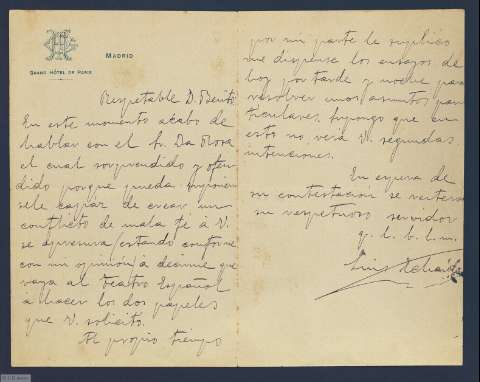 MADRID
GRAND HÔTEL DE PARIS
Respetable D. Benito
En este momento acabo de
hablar con el Sr. Da Rosa
el cual sorprendido y ofen
dido porque pueda suponer
sele capaz de crear un
conflicto de mala fé á V.
se apresura (estando conforme
con mi opinión) á decirme que
vaya al teatro Español
á hacer los dos papeles
que V. solicitó.
Al propio tiempo
por mi parte le suplico
me dispense los ensayos de
hoy por tarde y noche para
resolver unos asuntos par
ticulares, supongo que en
esto no verá V. segundas
intenciones.
En espera de
su contestación se reitera
su respetuoso servidor
q. l. b. l. m.